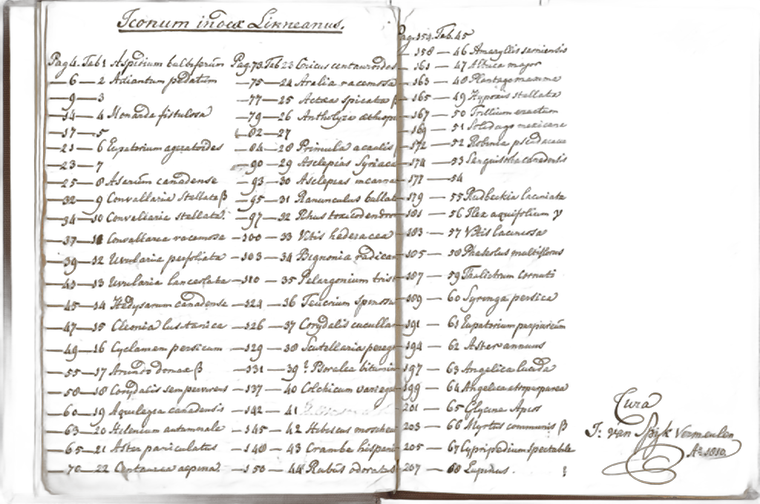 Iconum index Linneanus.
Pag 4. Tab 1 Aspidium bulbiferum
— 6 — 2 Adiantum pedatum
— 9 — 3
— 14 — 4 Monarda fistulosa
— 17 — 5
— 21 — 6 Eupatorium ageratoides
— 23 — 7
— 25 — 8 Asarum canadense
— 32 — 9 Convallaria Stellata β
— 34 — 10 Convallaria stellata.
— 37 — 11 Convallarea racemosa
— 39 — 12 Uvularia perfoliata
— 13 Uvularia lanceolata
— 45 — 14 Hedysarum canadense
— 47 — 15 Cleonia lusitanica
— 49 — 16 Cyclamen persicum
— 55 — 17 Arundo donax β
— 58 — 18 Corydalis sempervirens
— 60 — 19 Aquilegia canadensis
— 63 — 20 Helenium autumnale
— 65 — 21 Aster paniculatus
— 70 — 22 Centaurea alpina
Pag. 73. Tab 23 Cnicus centauroides
— 75 — 24 Aralia racemosa
— 77 — 25 Actaea Spicata β
— 79 — 26 Antholyza aethiop
— 82 — 27
— 84 — 28 Primula acaulis
— 90 — 29 Asclepias Syriaca
— 93 — 30 Asclepias incarna
— 95 — 31 Ranunculus bullat
— 97 — 32 Rhus toxicodendron
— 100 — 33 Vitis hederacea
— 103 — 34 Bignonia radican
— 110 — 35 Pelargonium trist
— 124 — 36 Teucrium
— 126 — 37 Corydalis cucullar
— 129 — 38 Scutellaria peregr
— 131 — 39 Psoralea bitumin
— 137 — 40 Colchicum varieg
— 142 — 41
— 145 — 42 Hibiscus moscheu
— 148 — 43 Crambe hispani
— 150 — 44 Rubus odoratus
Pag. 154. Tab. 45
— 158 — 46 Amaryllis sarniensis
— 161 — 47 Altica major
— 163 — 48 Plantago maxima
— 165 — 49 Hypoxis stellata
— 167 — 50 Trillium erectum
— 169 — 51 Solidago mexicana
— 172 — 52 Robinia pseudacacia
— 174 — 53 Sanguinaria canadensis
— 177 — 54
— 179 — 55 Rudbeckia laciniata
— 181 — 56 Ilex aquifolium γ
— 183 — 57 Vitis laciniosa
— 185 — 58 Phaseolus multiflorus
— 187 — 59 Thalictrum Cornuti
— 189 — 60 Syringa persica
— 191 — 61 Eupatorium purpureum
— 194 — 62 Aster annuus
— 197 — 63 Angelica lucida
— 199 — 64 Angelica atropurpurea
— 201 — 65 Glycine Apios
— 203 — 66 Myrtus communis β
— 205 — 67 Cypripedium spectabile
— 207 — 68 Lupulus.
Cura
J: van Spyk Vermeulen
Aº 1810.